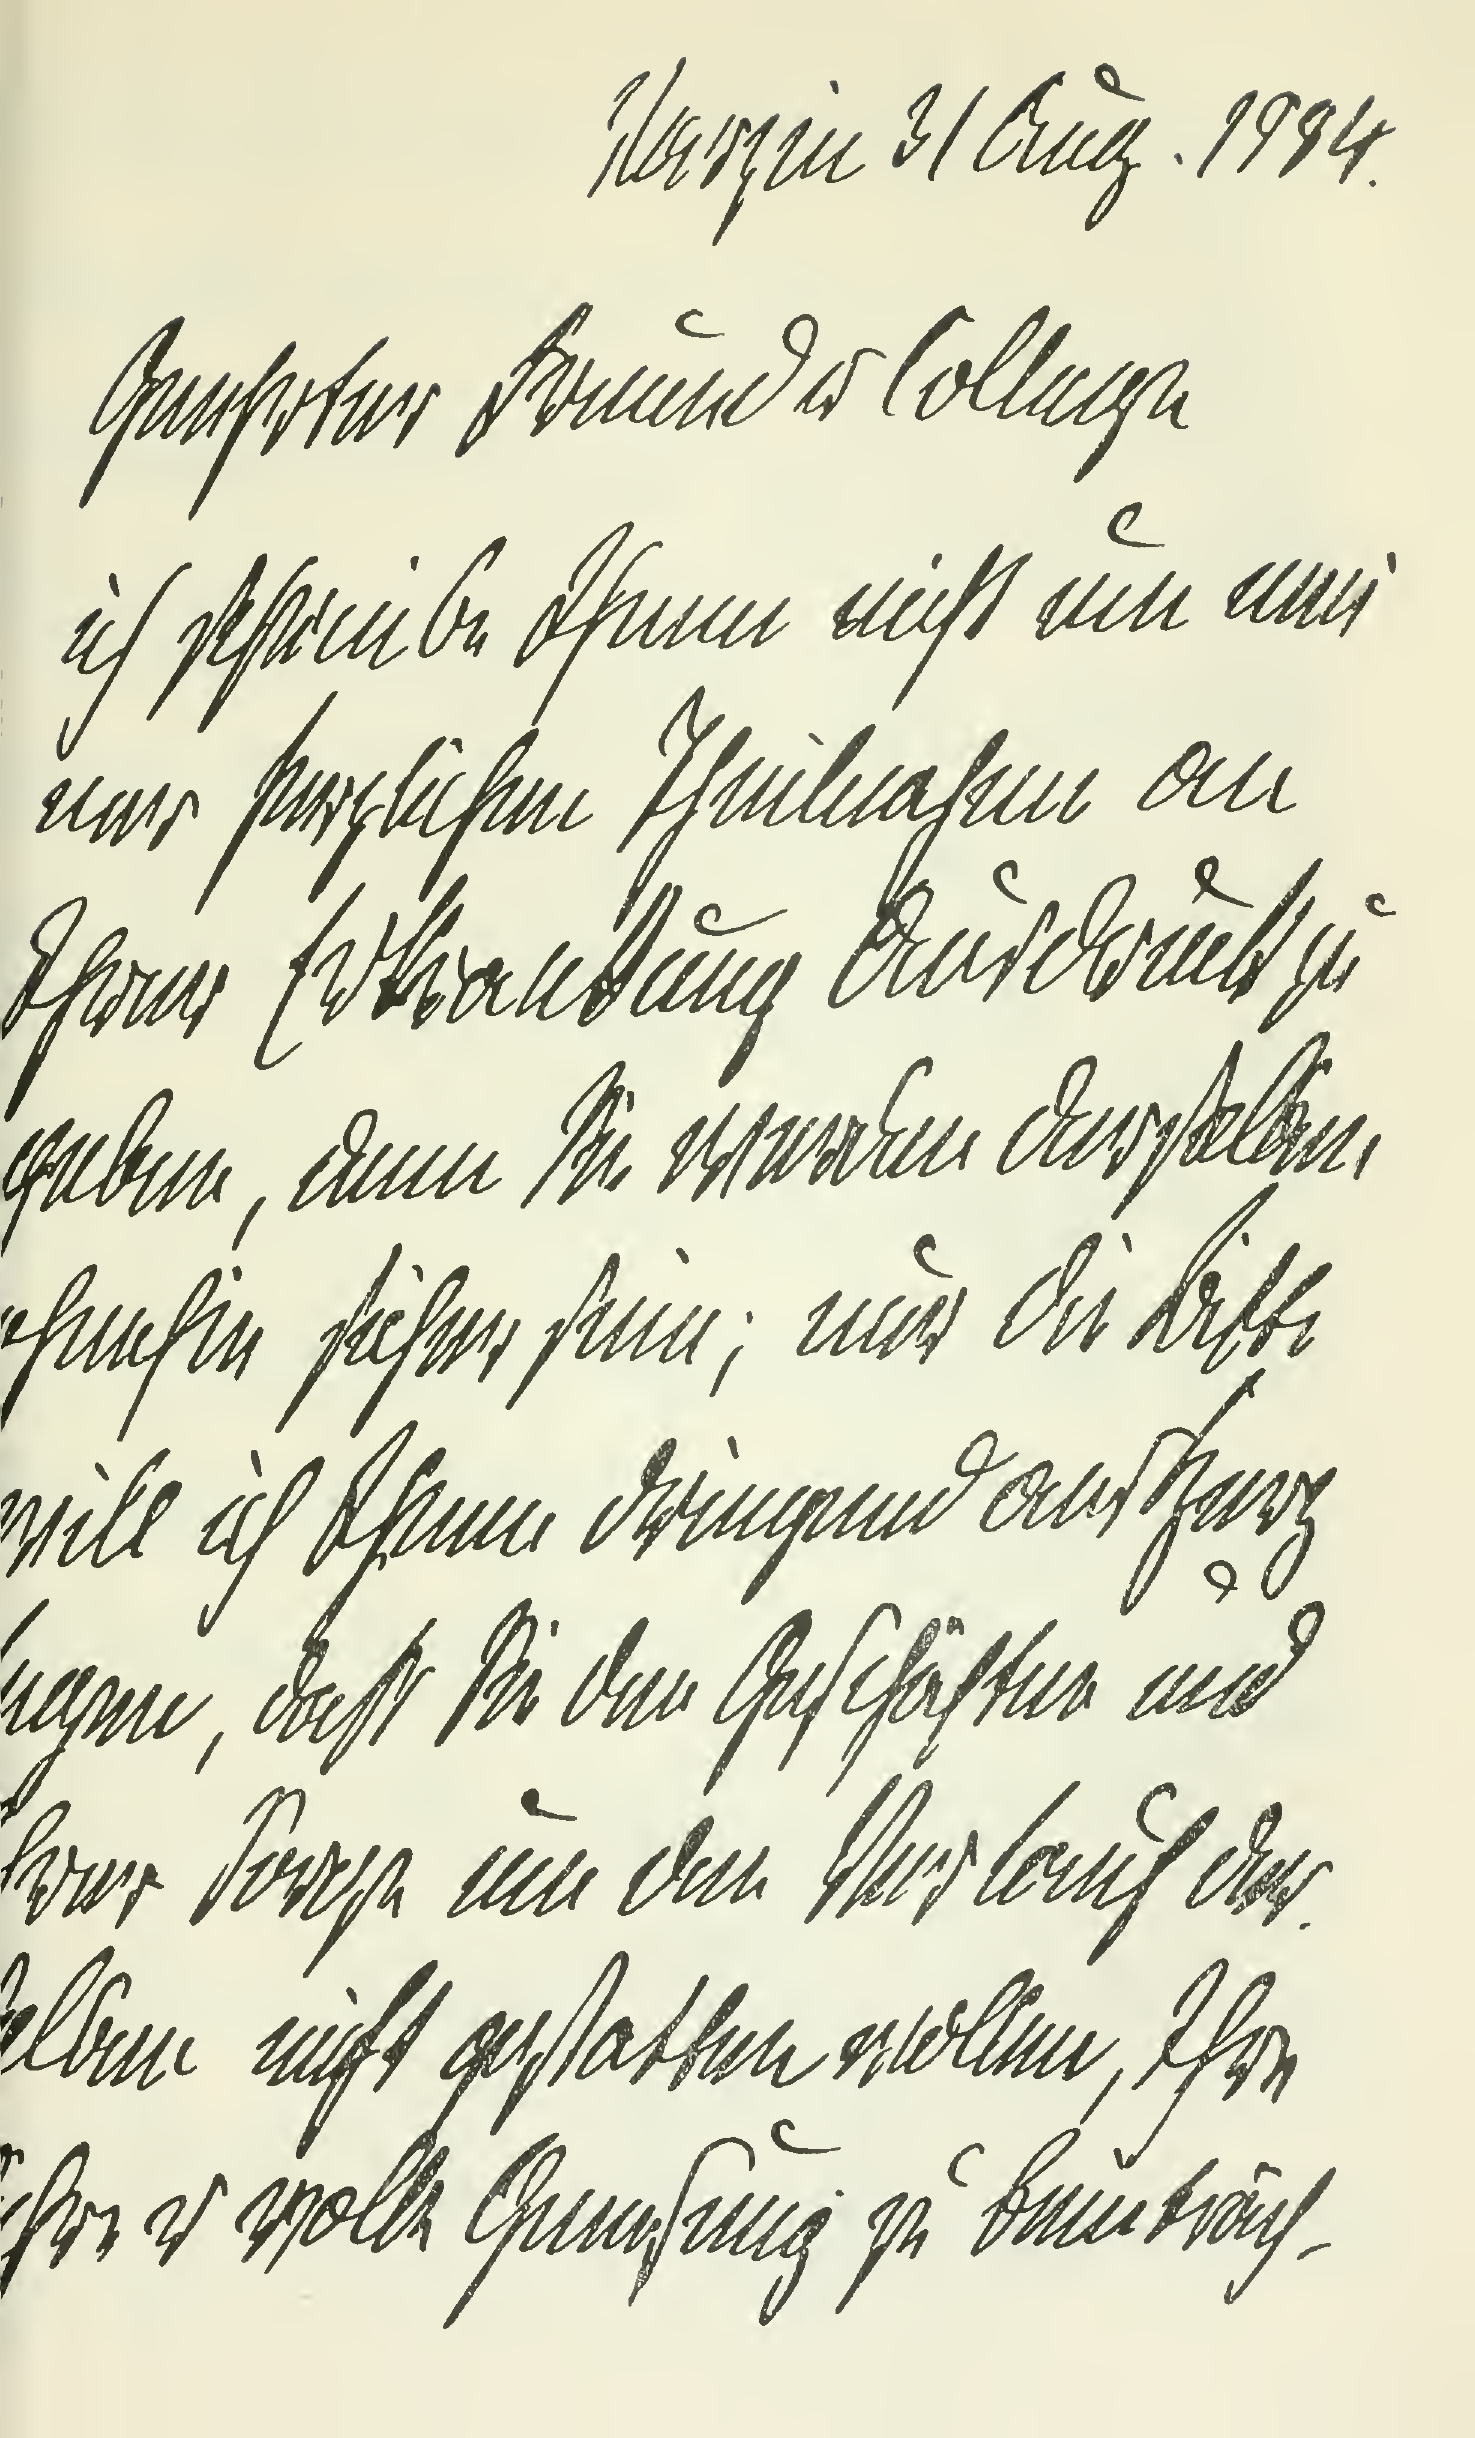 Varzin 31 Aug. 1884.
Geehrter Freund u College
ich schreibe Ihnen nicht um mei
ner herzlichen Theilnahme an
Ihrer Erkrankung Ausdruck zu
geben, denn Sie werden derselben
ohnehin sicher sein; nur die Bitte
will ich Ihnen dringend ans Herz
legen, daß Sie den Geschäften und
Ihrer Sorge um den Verlauf der.
selben nicht gestatten wollen, Ihre
sichre u volle Genesung zu beeinträch-